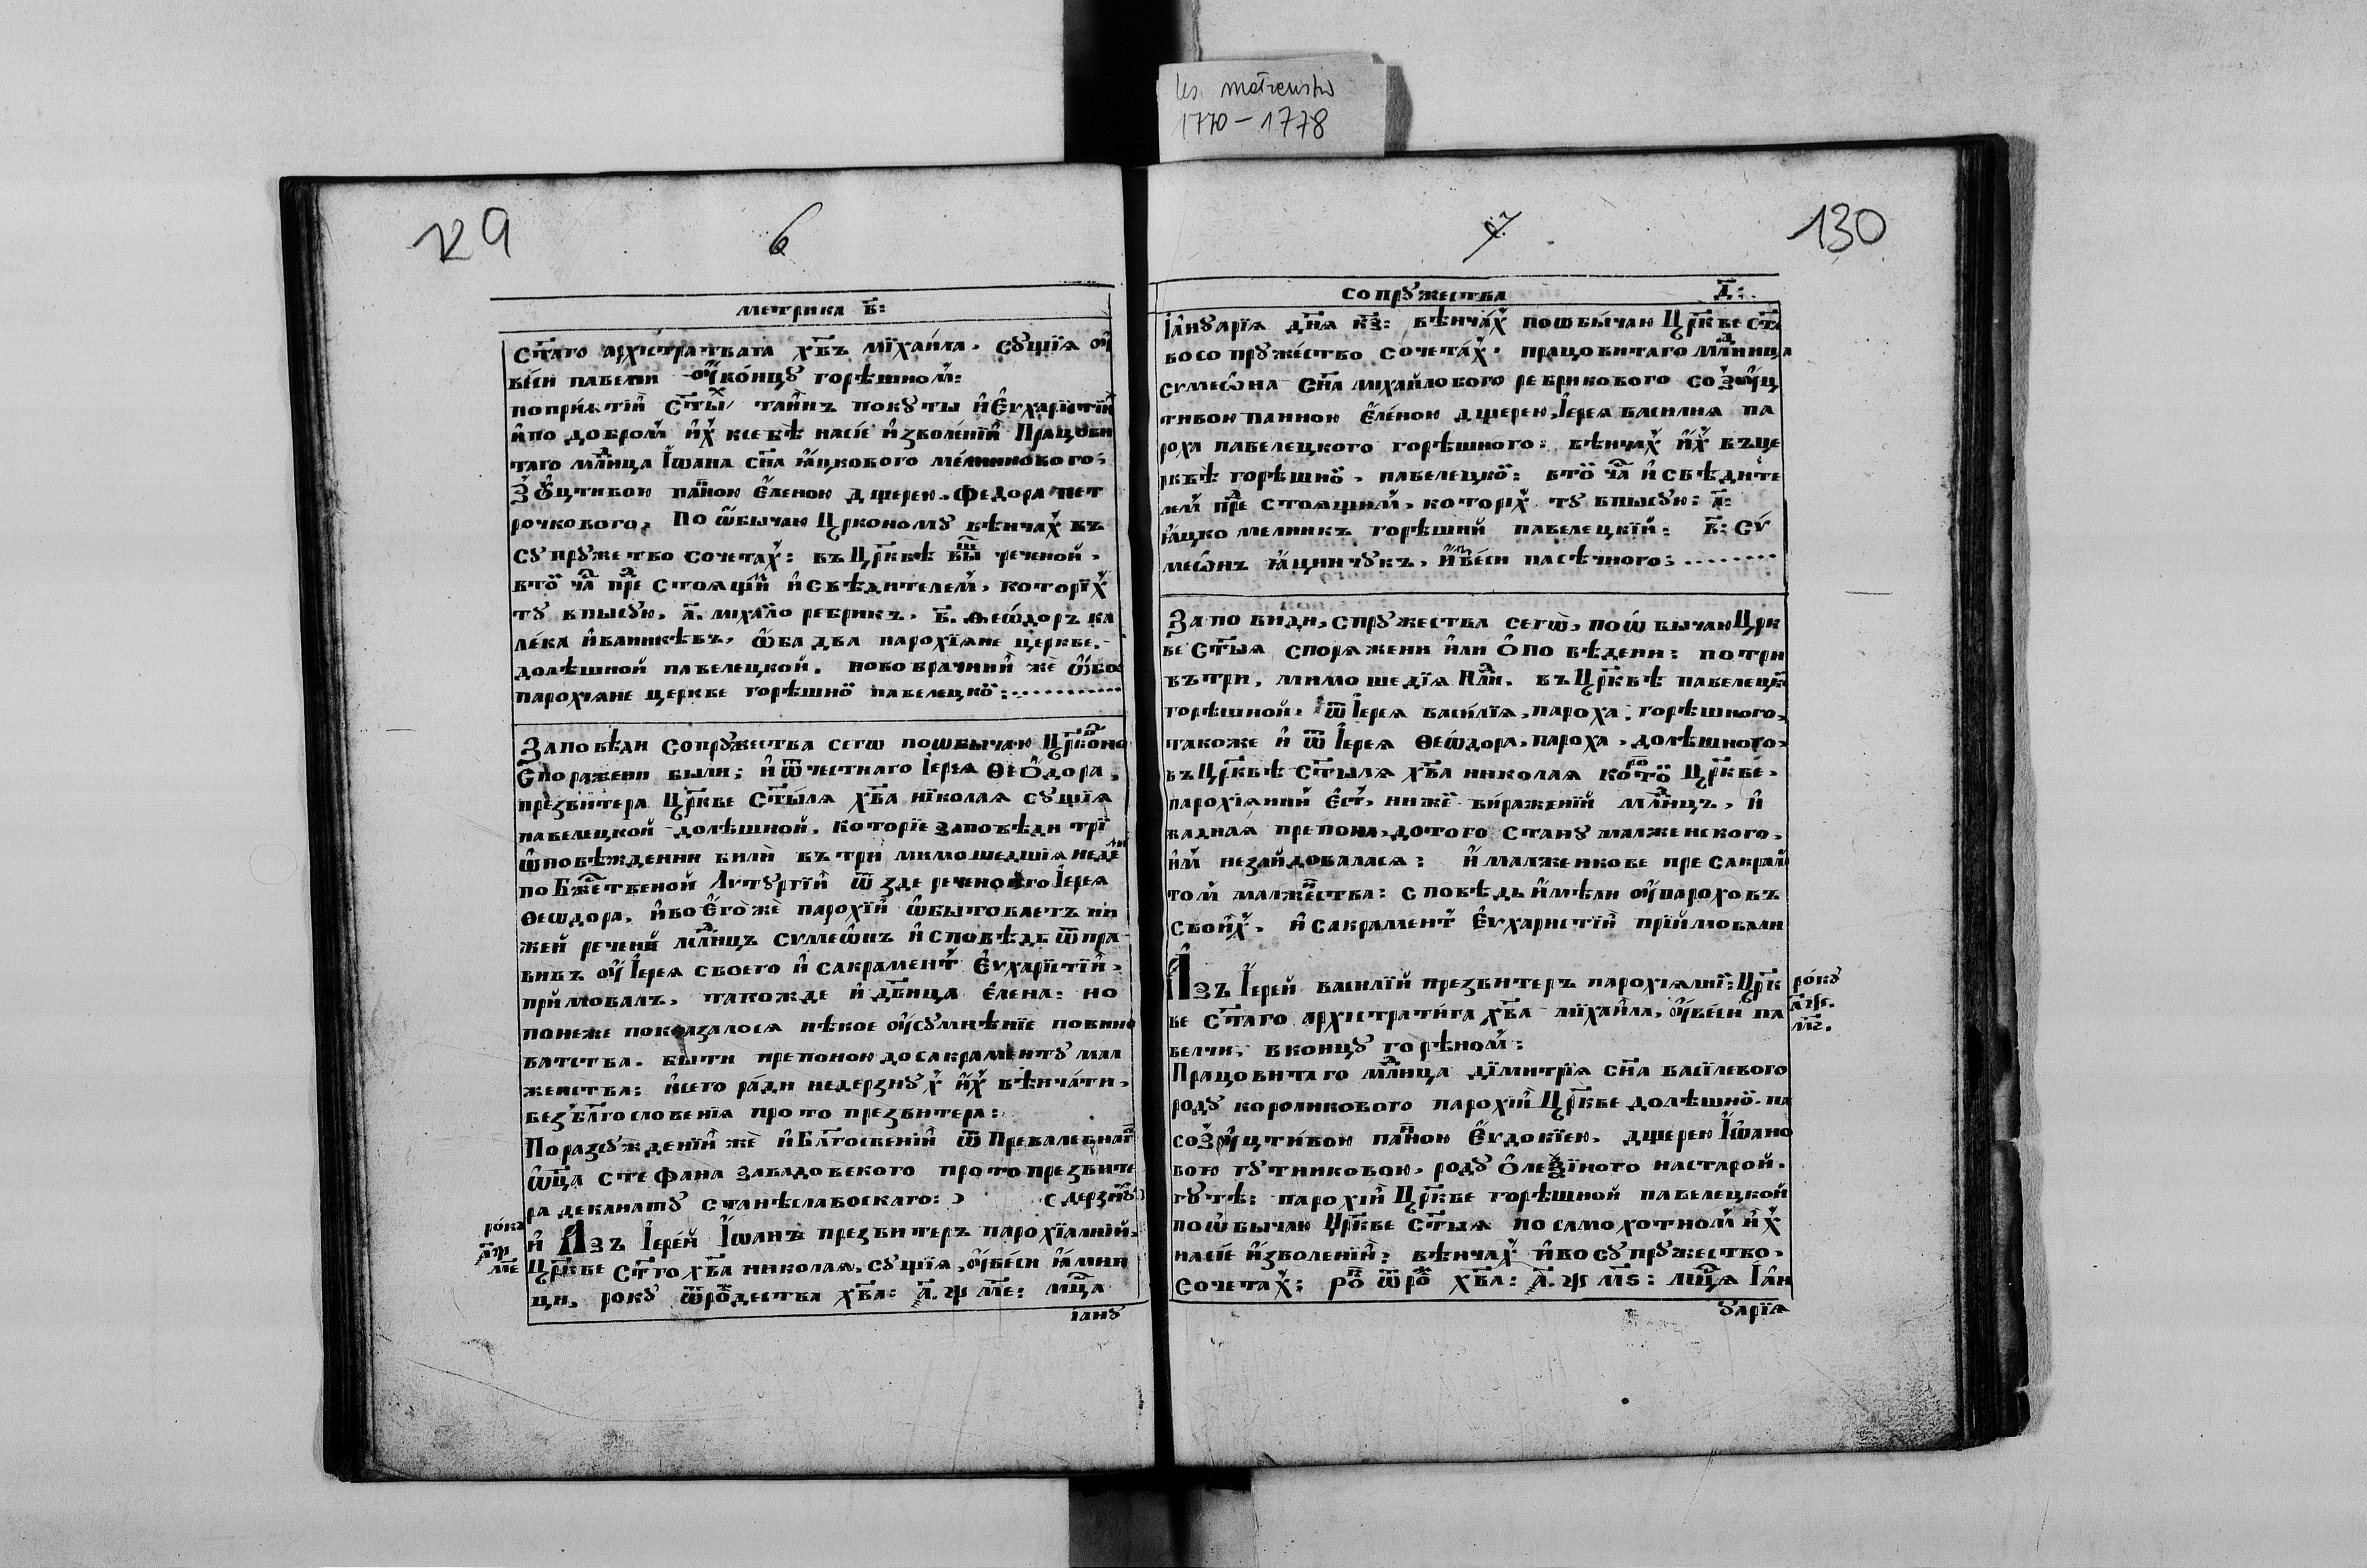 ks. małżeństw
1770-1778
129
6
метрика в҃:
Ст҃аго архїстратигата хв҃ъ мїхаи́ла. сꙋщїя ѹ҆
ве́си павелчи ѹ҆ ко́нцꙋ горѣшном:
поприятїи҆ Ст҃ы́х таи҆нъ покꙋты и҆ Еѵхарїстїи҆
и҆ по добром и҆х ксебѣ насїе и҆зволе́нїи҆ Працови
таго млд҃ца І҆ѡана сн҃а Я҆цкового ме́лниково​го:
Зѹ҆цтивою панною Е҆леною дщерею. Федора пет
рочкового. По ѡ҆бычаю Цркономꙋ вѣнчах въ
сꙋпружество сочетах: въ Цр҃квѣ вы́ш реченой.
втой ча҃с пре҃д стоящїй и҆ свѣдителем. которїх
тꙋ впысꙋю. а҃. міхайло ребрикъ. в҃. ѳеѡ́доръ ка
ле́ка и҆ваникѣвъ. ѡ҆ба два парохїяне церкве.
долѣшной павелецкой. новобрачнии҆ же ѡ҆боє
парохїяне церкве горѣшной павелецкой:
Заповѣди Сопрꙋжества сегѡ поѡбычаю Цр҃коно
Споражени были: и҆ ѿ честнаго І҆ерея ѲеѼ҆дора,
презвитера Цр҃кве Ст҃ы́ля хв҃а нїколая сꙋщїя
павелецкой долѣшной. которїе заповѣди трї
ѡ҆повѣждении билѝ вътри мимошедшїя неде́ли
по Бж҃ественой Лѵтꙋргїи҆ ѿ зде реченого І҆ерея
Ѳеѡдора. и҆бо Е҆го̀ же парохїи҆ ѡ҆бытоваетъ ни
жей речений млд҃нцъ Сѵмеѡ҆нъ и҆ сповѣдь ѿпра
вивъ ѹ҆ І҆ерея своего и҆ сакрамент Еѵ҆харїстїи҆.
приймовалъ. такожде и҆ дв҃ица Е҆лена: но
понеже показалося нѣкое ѹ҆сꙋмнѣнїе повино
ватства. быти препоною до сакраментꙋ мал
женства: и҆ сего ра́ди недерзнꙋх и҆х вѣнча́ти.
безбл҃гословенїя прото презвитера:
Поразсꙋжденїи҆ же и҆ Бл҃госвенїи҆ ѿ Превалебнаг
ѡ҆т҃ца стефана завадовского протопрезвите
ра деканатꙋ станѣславоскаго:) (дерзнꙋ)
рокꙋ
а҃ѱ
м҃е
и҆ Азъ І҆ере́й І҆ѡанъ презвитеръ парохїалній.
Цр҃кве Ст҃го хв҃а николая. сꙋщїя. ѹ҆ ве́си Я҆мни
ци. рокꙋ ѿ рождества хв҃а: а҃.ѱ м҃е: мц҃а
іанꙋ
7
130
сопрꙋжества д҃:
І҆анꙋарїя дн҃я к҃з: вѣнча́х поѡбы́чаю Цр҃кве ст҃ы
восопруже́ство сочета́х. працовитаго млд҃нца
сѵмеѡ́на сн҃а міхайлового ребрикового со Зѹ҆ц
тивою панною Е҆ле́ною дщерею, І҆ерея василия па
роха павелецкого горѣшного: вѣнчах и҆х въце
рквѣ горѣшной. павелецкой: втой ча҃с и҆ свѣдите
лем пре҃д стоящим, которїх тꙋ впысꙋю: а҃:
Я҆цко мелникъ горѣший павелецкїй: в҃: Сѵ́
меѡ́нъ Я҆цинчꙋкъ, и҆з ве́си пасѣчного:
Заповиди, спрꙋжества сегѡ̀, поѡ́бычаю Црк
ве Ст҃ыя споряжени и҆ли Ѻ҆повѣдени: потри
вътри, мимошедїя Нд҃ли. въ Цр҃квѣ павелецкой
горѣшной. ѿ І҆ерея васи́лїя, пароха. горѣшного,
такоже и҆ ѿ І҆ерея ѳеѡ́дора, пароха, долѣшного,
въ Цр҃квѣ Ст҃ыля хв҃а николая которой Цр҃кве,
парохїянин е҆ст, ниже́ ви́раженїй млд҃нцъ, и҆
жадная препона, дотого станꙋ малженского,
и҆м незайдовалася: и҆ малженкове пре сакрам
том малже́нства: сповѣдь и҆мѣли ѹ҆ пароховъ
свои́х, и҆ сакрамент Еѵ҆харистїи҆ прїймовали
Азъ І҆ерей василїй презвитеръ парохїялнїй: Цр҃к
ве Ст҃аго архїстрати́га хв҃а мїхаи́ла, ѹ҆ ве́си па
велчи, вконцꙋ горѣном:
рокꙋ
а҃ѱ.
м҃ѕ.
Працовитаго млд҃нца дїмитрїя сн҃а васїлевого
родꙋ короликового парохїи҆ Цр҃кве долѣшной. па
со Зѹ҆цти́вою панною Еѵ҆докїею, дщерею І҆ѡано
вою гꙋтниковою, родꙋ Ѻ҆леѯїного настарой.
гꙋтѣ: парохїи҆ Цр҃кве горѣшной павелецкой
поѡ҆бычаю Цр҃кве Ст҃ыя посамохотном и҆х
насїе и҆зволенїи҆: вѣнчах и҆ во сꙋпрꙋжество,
Сочетах: ро҃к ѿ ро҃ж хв҃а: а҃.ѱ м҃ѕ: мц҃я І҆ан
ꙋарїя